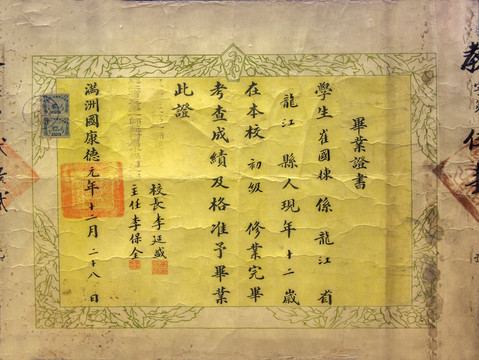 畢業證書
學生 崔國棟 係 龍江 省
龍江 縣人現年 十二 歲
在本校 初級 修業完畢
考查成績及格准予畢業
此證
校長 李廷盛
主任 李保全
滿洲國康德 元年 十二月 二十八 日